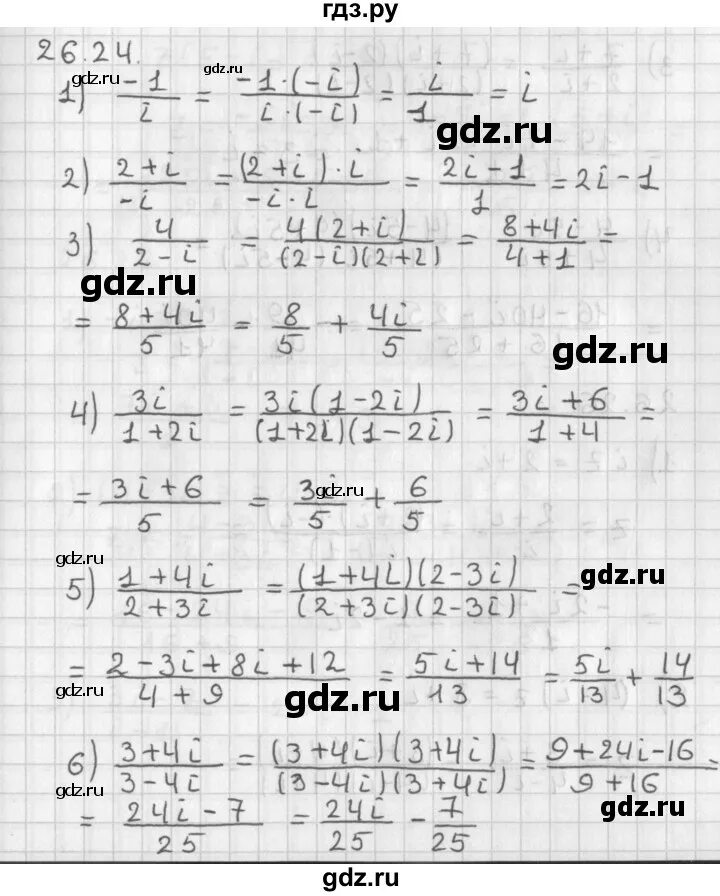 гдз.ру
26.24.
1) -1/i = -1·(-i)/i·(-i) = i/1 = i
gdz.ru
2) 2+i/-i = (2+i)·i/-i·i = 2i-1/1 = 2i-1
3) 4/2-i = 4(2+i)/(2-i)(2+2) = 8+4i/4+1 =
gdz.ru
= 8+4i/5 = 8/5 + 4i/5
gdz.ru
4) 3i/1+2i = 3i(1-2i)/(1+2i)(1-2i) = 3i+6/1+4 =
gdz.ru
= 3i+6/5 = 3i/5 + 6/5
gdz.ru
gdz.ru
5) 1+4i/2+3i = (1+4i)(2-3i)/(2+3i)(2-3i) =
gdz.ru
= 2-3i+8i+12/4+9 = 5i+14/13 = 5i/13 + 14/13
gdz.ru
gdz.ru
gdz.ru
6) 3+4i/3-4i = (3+4i)(3+4i)/(3-4i)(3+4i) = 9+24i-16/9+16 =
gdz.ru
gdz.ru
= 24i-7/25 = 24i/25 - 7/25
gdz.ru